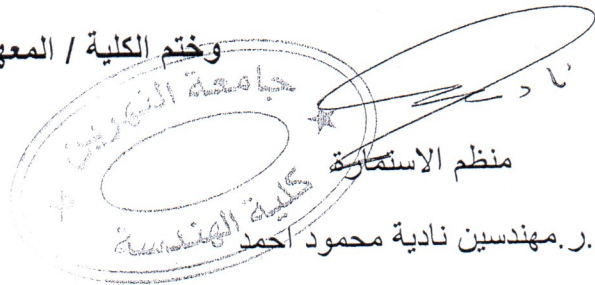 وختم الكلية / المعه
جامعة النهرين
كلية الهندسة
منظم الاستمارة
ر.مهندسين نادية محمود احمد.